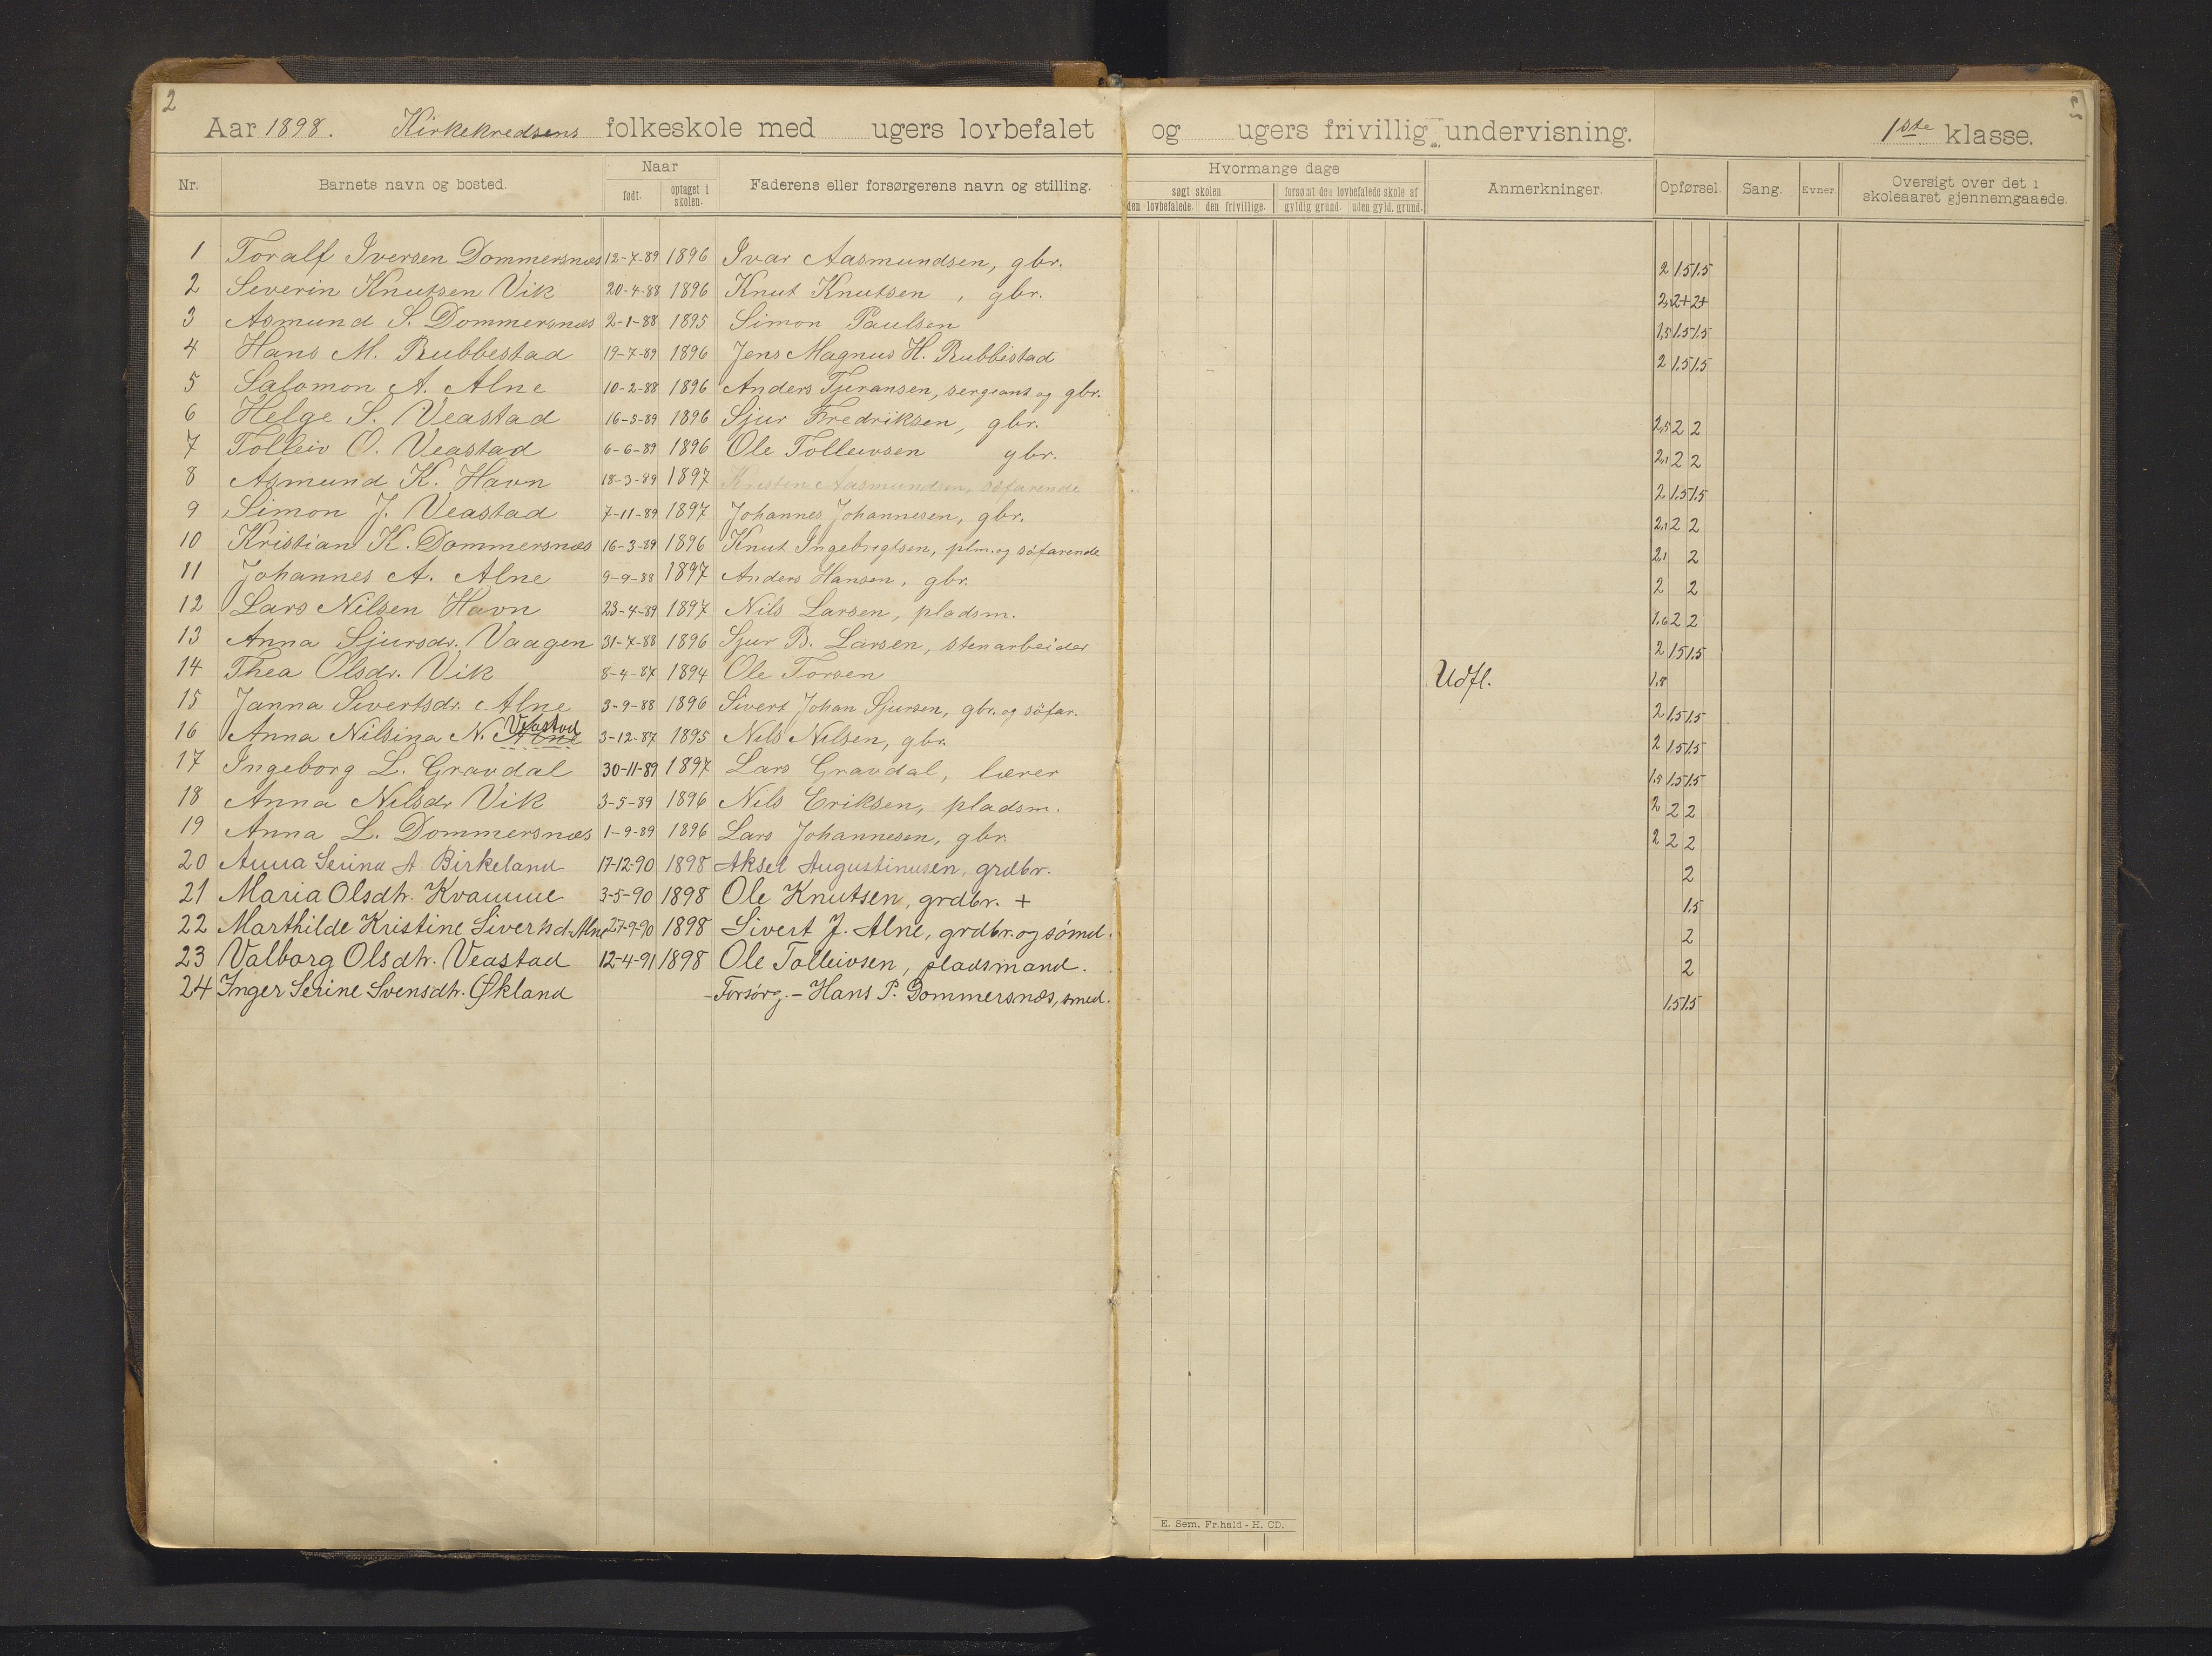 2
Aar 1898. Kirkekredsens folkeskole med ugers lovbefalet og ugers frivillig undervisning. 1ste klasse.
Nr. Barnets navn og bosted. Naar født. optaget i skolen. Faderens eller forsørgerens navn og stilling. Hvormange dage søgt skolen den lovbefalede. den frivillige. forsømt den lovbefalede skole af gyldig grund. uden gyld. grund. Anmerkninger. Opførsel. Sang. Evner. Oversigt over det i skoleaaret gjennemgaaede.
1 Toralf Iversen Dommersnæs 12-7-89 1896 Ivar Aasmundsen, gbr. 2 1.5 1.5
2 Severin Knutsen Vik 20-4-88 1896 Knut Knutsen, gbr. 2+ 2+
3 Asmund S. Dommersnæs 2-1-88 1895 Simon Paulsen 1,5 1.5 1.5
4 Hans M. Rubbestad 19-7-89 1896 Jens Magnus H. Rubbestad 2 1.5 1.5
5 Salomon A. Alne 10-2-88 1896 Anders Tjeransen, sergeant og gbr.
6 Helge S. Veastad 16-5-89 1896 Sjur Fredriksen, gbr. 2,5 2 2
7 Tolleiv O. Veastad 6-6-89 1896 Ole Tolleivsen gbr. 2,1 2 2
8 Asmund K. Havn 18-3-89 1897 Kristen Aasmundsen, søfarende 2 1.5 1.5
9 Simon J. Veastad 7-11-89 1897 Johannes Johannesen, gbr. 2,1 2 2
10 Kristian K. Dommersnæs 16-3-89 1896 Knut Ingebrigtsen, plm. og søfarende 2,1 2
11 Johannes A. Alne 9-9-88 1897 Anders Hansen, gbr. 2 2
12 Lars Nilsen Havn 23-4-89 1897 Nils Larsen, pladsm. 1.6 2 2
13 Anna Sjursdr. Vaagen 31-7-88 1896 Sjur B. Larsen, stenarbeider 2 1.5 1.5
14 Thea Olsdr. Vik 8-4-87 1894 Ole Torsen Udfl. 1.8
15 Janna Sivertsdr. Alne 3-9-88 1896 Sivert Johan Sjursen, gbr. og søfar. 2 1.5 1.5
16 Anna Nilsina N. Alne Veastad 3-12-87 1895 Nils Nilsen, gbr. 2 1.5 1.5
17 Ingeborg L. Gravdal 30-11-89 1897 Lars Gravdal, lærer 1.5 1.5 1.5
18 Anna Nilsdr. Vik 3-5-89 1896 Nils Eriksen, pladsm. 2 2 2
19 Anna L. Dommersnæs 1-9-89 1896 Lars Johannesen, gbr. 2 2 2
20 Anna Serina A Birkeland 17-12-90 1898 Aksel Augustinusen, grdbr. 2
21 Maria Olsdtr. Kvamme 3-5-90 1898 Ole Knutsen, grdbr. + 1.5
22 Marthilde Kristine Sivertsd. Alne 27-9-90 1898 Sivert J. Alne, grdbr. og sømd. 2
23 Valborg Olsdtr. Veastad 12-4-91 1898 Ole Tolleivsen, pladsmand. 2
24 Inger Serine Svensdtr. Økland -Forsørg.- Hans P. Dommersnæs, smed. 1.5 1.5
E. Sem, Fr.hald - H. CD.